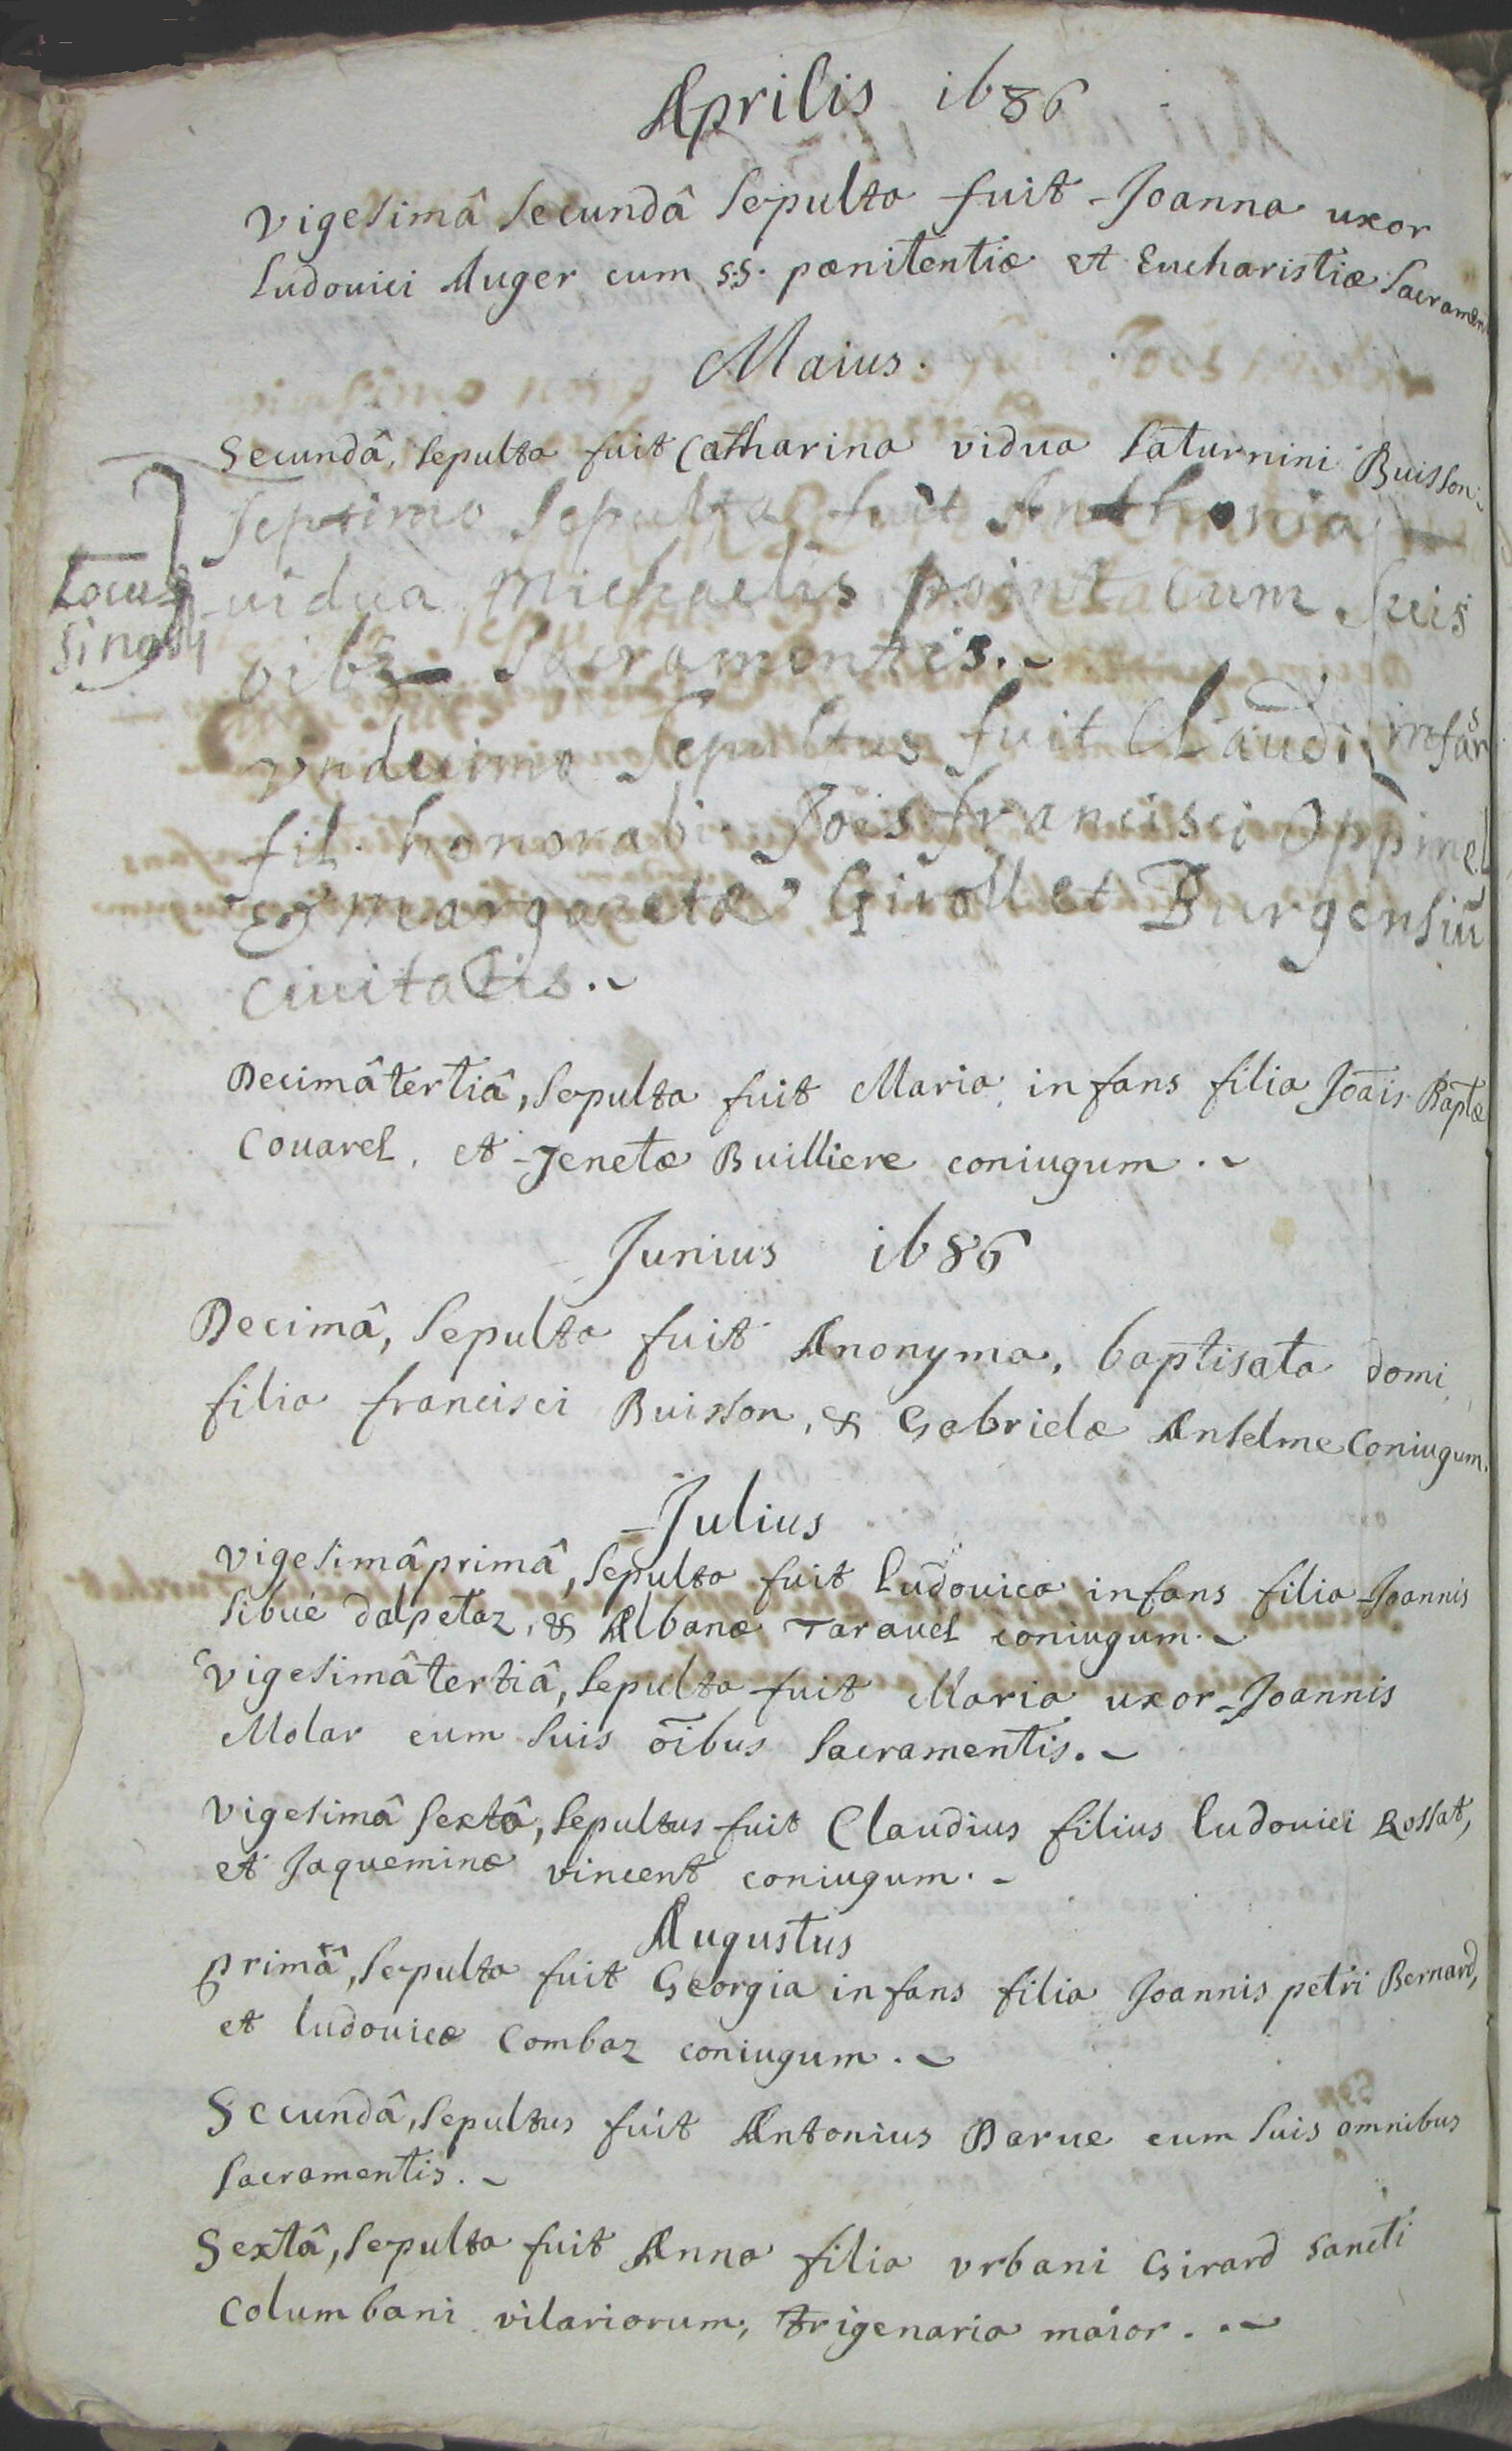 Aprilis 1686
vigesimâ secundâ sepulta fuit Joanna uxor
Ludouici Auger cum s.s. pœnitentiæ et Eucharistiæ sacramen
Maius.
Secundâ, sepulta fuit Catharina vidua Saturnini Buisson.
Septimo Sepulta fuit Anthonia
uidua Michaelis point cum suis
oibs Sacramentis.
undecimo Sepultus fuit Claudi, infans
fil. honorabi. Jois francisci Oppinel
et margaretæ Giroll et Burgensiũ
ciuitatis.
Decimâtertiâ, sepulta fuit Maria infans filia Joãis Baptæ
Couarel, et Jenetæ Buillierе coniugum.
Junius 1686
Decimâ, sepulta fuit Anonyma, baptisata domi
filia francisci Buisson, & Gabrielæ Anselme Coniugum.
Julius
vigesimâprimâ, sepulta fuit Ludouica infans filia Joannis
Sibué dalpetaz, & Albanæ Tarauel coniugum.
vigesimâtertiâ, sepulta fuit Maria uxor Joannis
Molar cum suis õibus sacramentis.
vigesimâ sextâ, sepultus fuit Claudius filius Ludouici Rossat,
et Jaqueminæ vincent coniugum.
Augustus
primâ, sepulta fuit Georgia infans filia Joannis petri Bernard,
et ludouicæ Combaz coniugum.
Secundâ, sepultus fuit Antonius Darue cum suis omnibus
sacramentis.
Sextâ, sepulta fuit Anna filia vrbani Girard sancti
Columbani vilariorum, trigenaria maior.